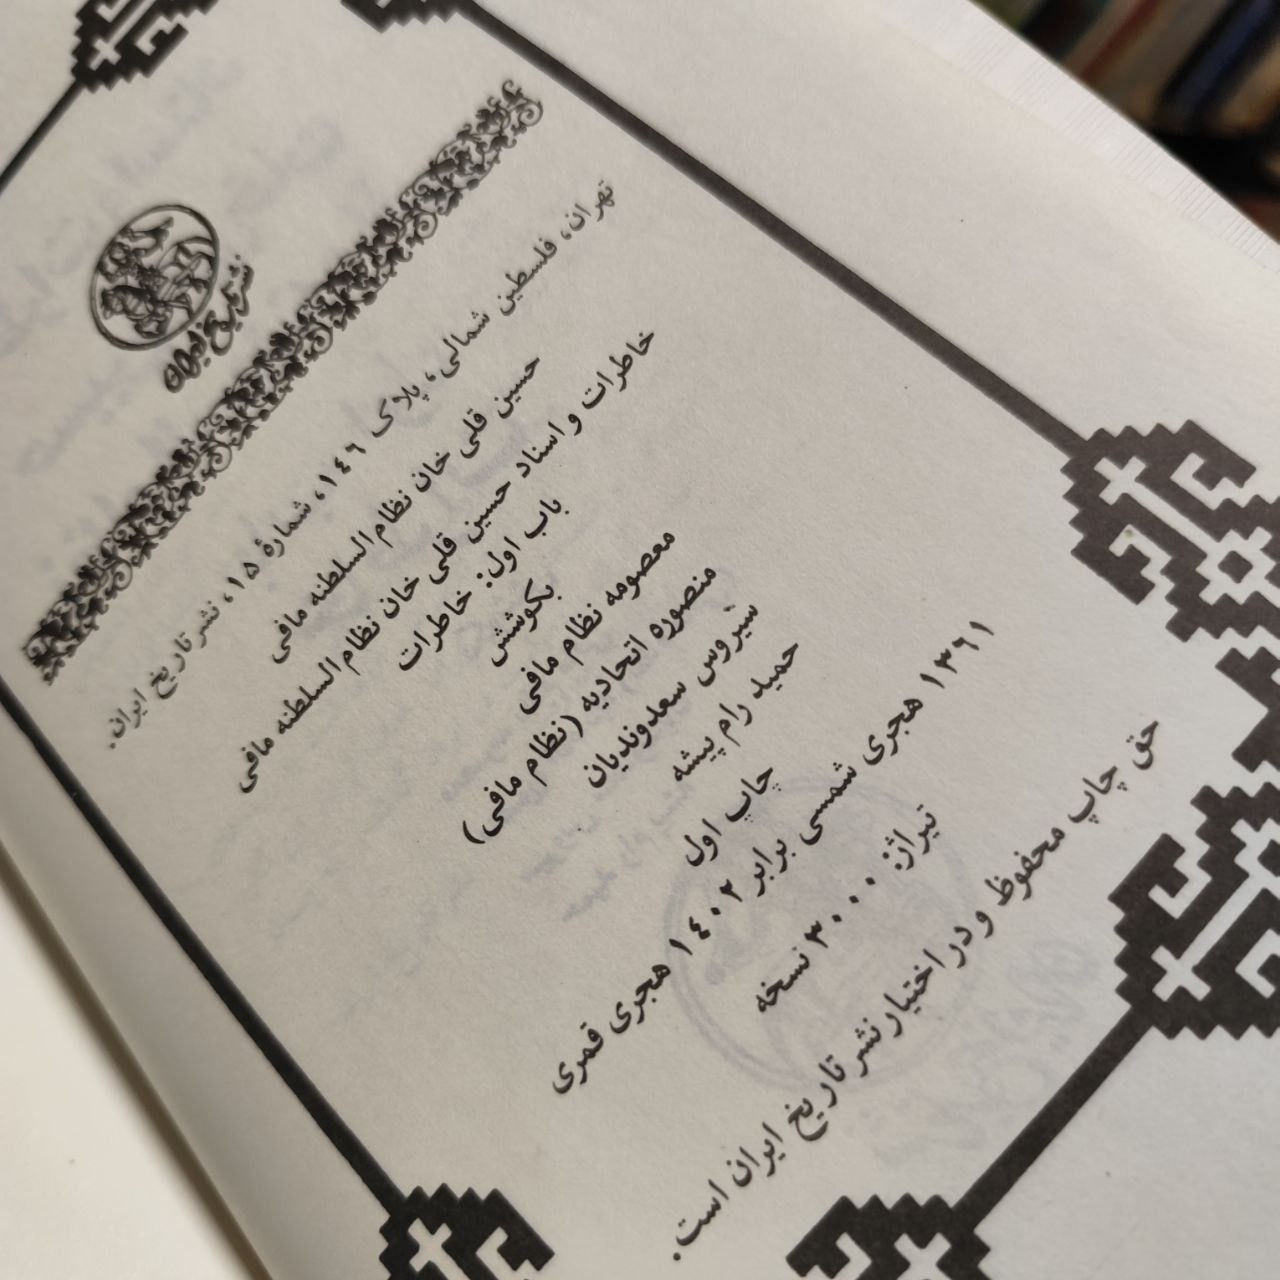 نشر تاریخ ایران
تهران، فلسطین شمالی، پلاک ۱٤٦، شمارهٔ ۱۵، نشر تاریخ ایران.
حسین قلی خان نظام‌السلطنه مافی
خاطرات و اسناد حسین قلی خان نظام‌السلطنه مافی
باب اول: خاطرات
بکوشش
معصومه نظام مافی
منصوره اتحادیه (نظام مافی)
سیروس سعدوندیان
حمید رام پیشه
چاپ اول
۱۳٦۱ هجری شمسی برابر ۱٤۰۲ هجری قمری
تیراژ: ۳۰۰۰ نسخه
حق چاپ محفوظ و در اختیار نشر تاریخ ایران است.